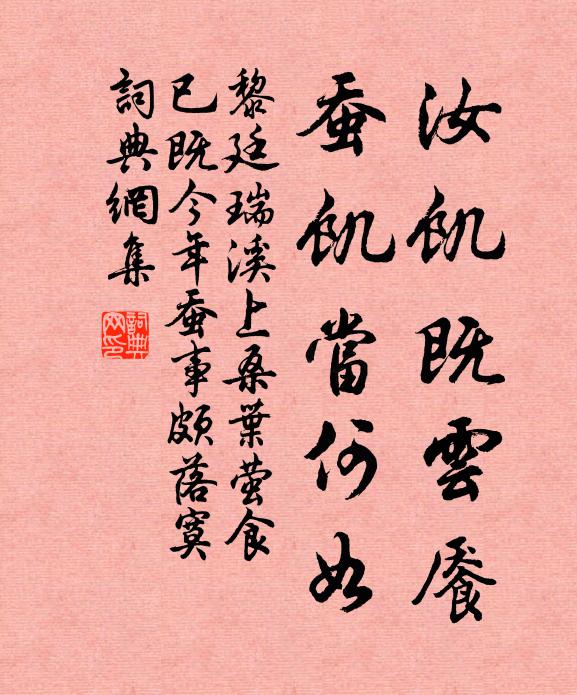 汝飢既雲饜
蚕飢當何如
黎廷瑞溪上桑葉蛍食
已既今年蚕事頗落寞
詞典網集
詞典网印